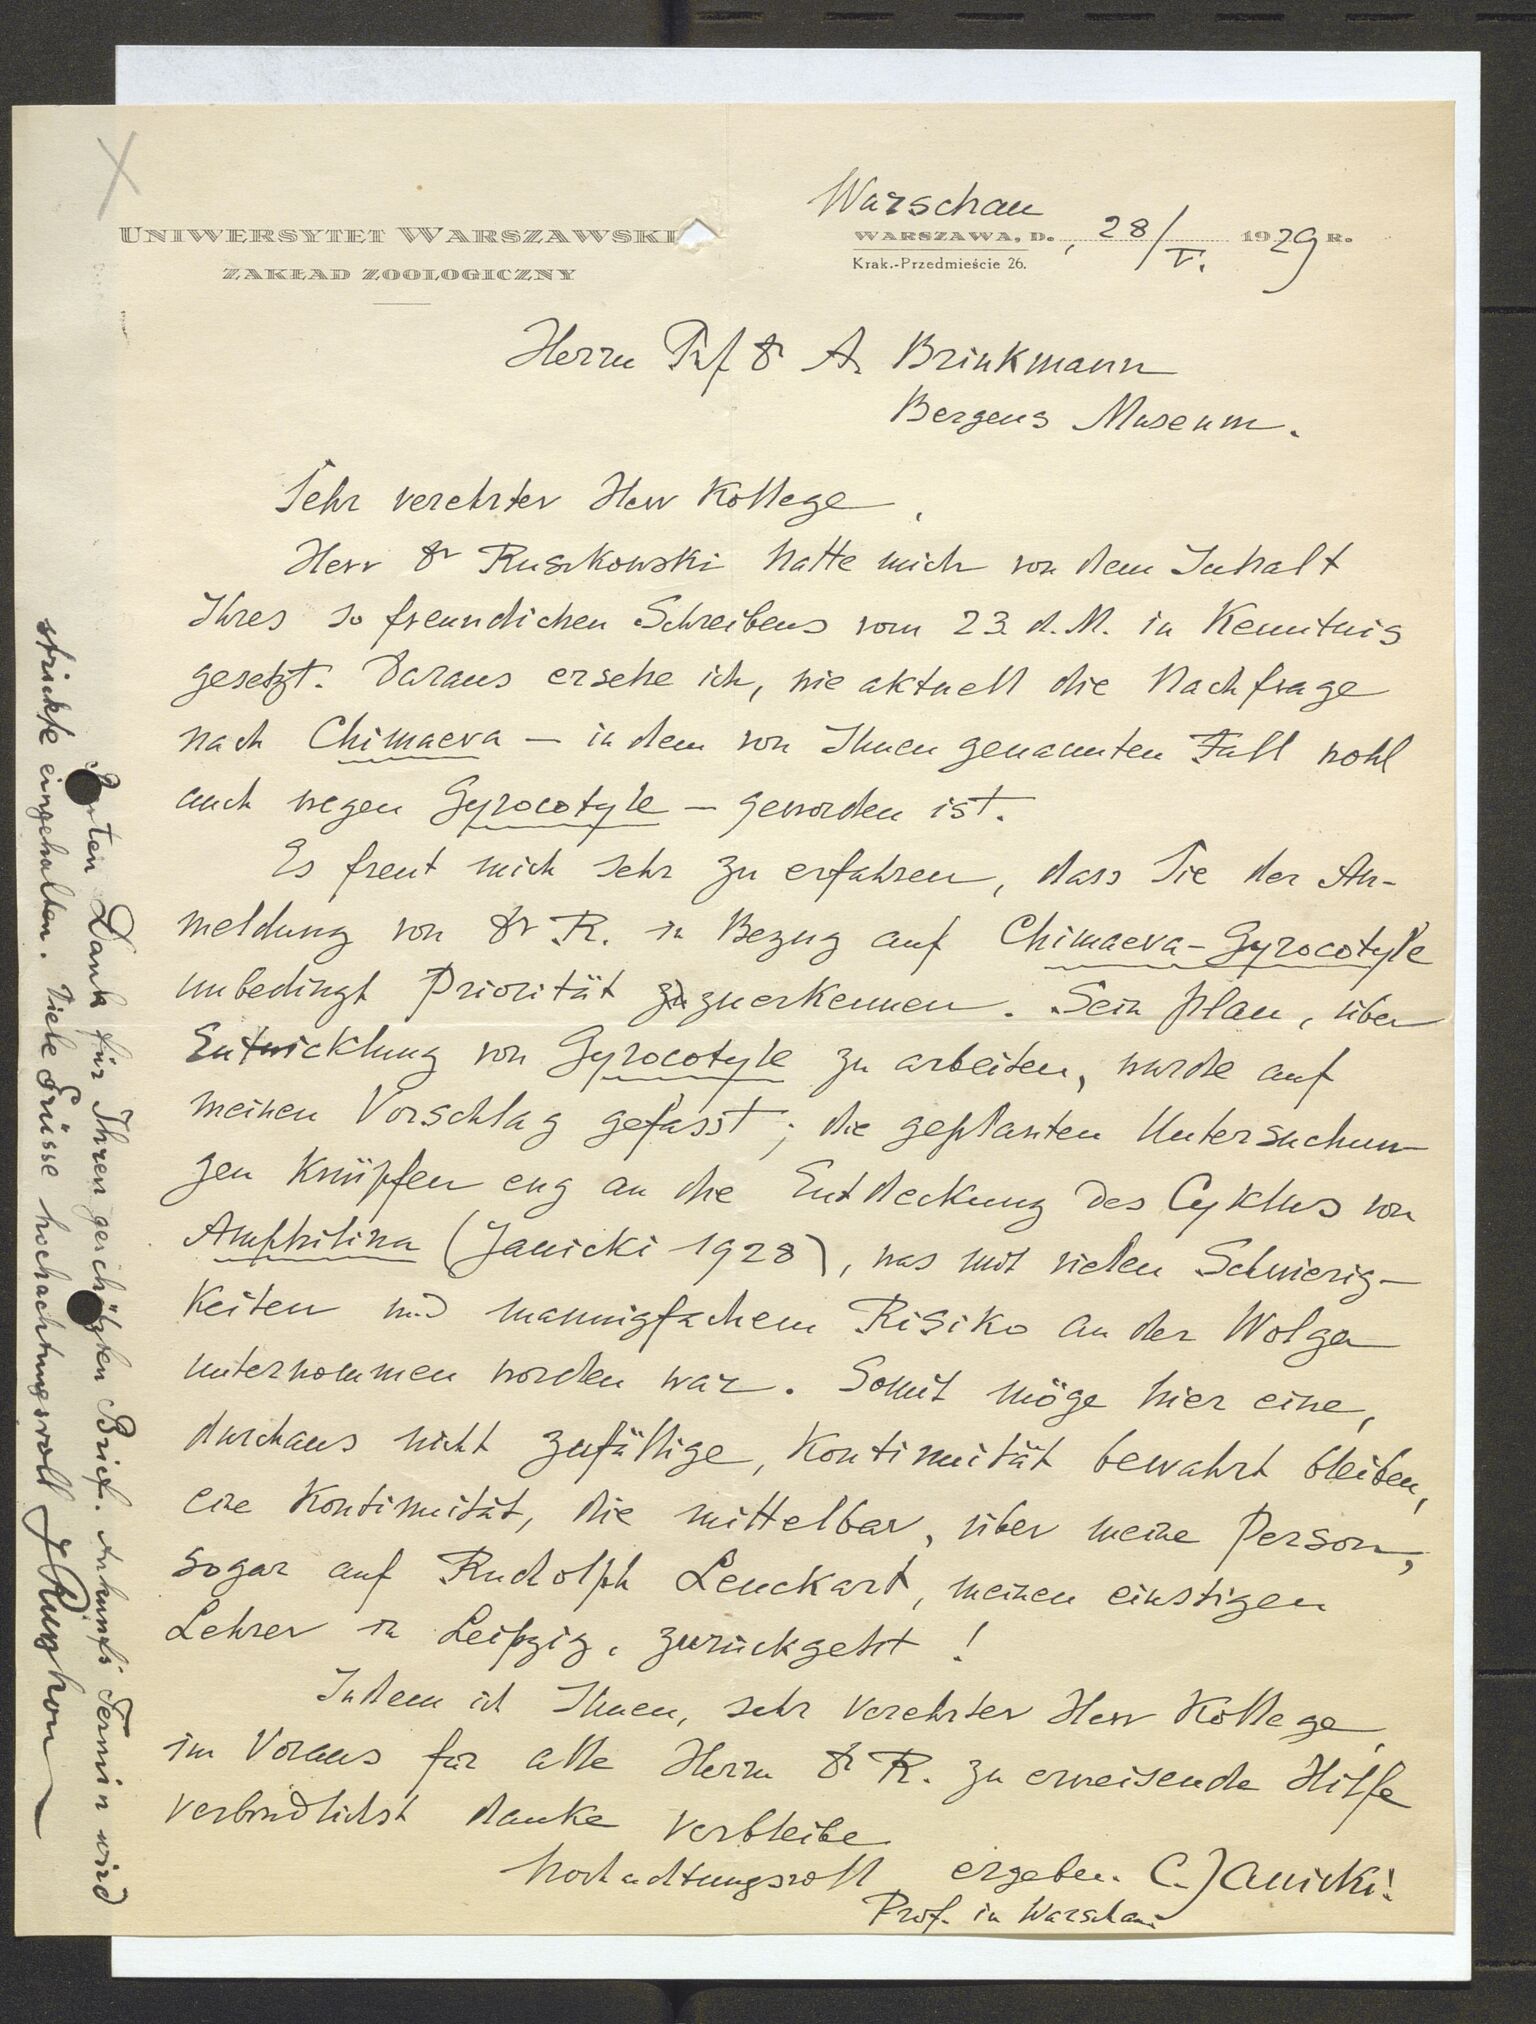 UNIWERSYTET WARSZAWSKI
ZAKŁAD ZOOLOGICZNY
Warschau
WARSZAWA, D. , 28/V. 1929 R.
Krak.-Przedmieście 26.
Herrn Prof Dr A. Brinkmann
Bergens Museum.
Sehr verehrter Herr Kollege,
Herr Dr Ruszkowski hatte mich von dem Inhalt
Ihres so freundlichen Schreibens vom 23. d. M. in Kenntnis
gesetzt. Daraus ersehe ich, wie aktuell die Nachfrage
nach Chimaera — in dem von Ihnen genannten Fall wohl
auch wegen Gyrocotyle — geworden ist.
Es freut mich sehr zu erfahren, dass Sie der An-
meldung von Dr R. in Bezug auf Chimaera-Gyrocotyle
unbedingt Priorität zuerkennen. Sein Plan, über
Entwicklung von Gyrocotyle zu arbeiten, wurde auf
meinen Vorschlag gefasst; die geplanten Untersuchun-
gen knüpfen eng an die Entdeckung des Cyklus von
Amphilina (Janicki 1928), was mit vielen Schwierig-
keiten und mannigfachem Risiko an der Wolga
unternommen worden war. Somit möge hier eine,
durchaus nicht zufällige, Kontinuität bewahrt bleiben,
eine Kontinuität, die mittelbar, über meine Person,
sogar auf Rudolph Leuckart, meinen einstigen
Lehrer in Leipzig, zurückgeht!
Indem ich Ihnen, sehr verehrter Herr Kollege,
im Voraus für alle Herrn Dr R. zu erweisende Hilfe
verbindlichst danke verbleibe
hochachtungsvoll ergeben. C. Janicki.
Prof. in Warschau
Besten Dank für Ihren geschätzten Brief. Ankunfts Termin wird
strickte eingehalten. Viele Grüsse hochachtungsvoll